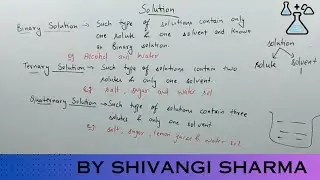 Solution
Binary Solution → Such type of solutions contain only
one solute & one solvent and known
as Binary solution.
eg Alcohol and water
Ternary Solution → Such type of solutions contain two
solutes & only one solvent.
eg salt, sugar and water sol
Quaternary Solution → Such type of solutions contain three
solutes & only one solvent
eg salt, sugar, lemon juice & water sol
solution
solute
solvent
BY SHIVANGI SHARMA